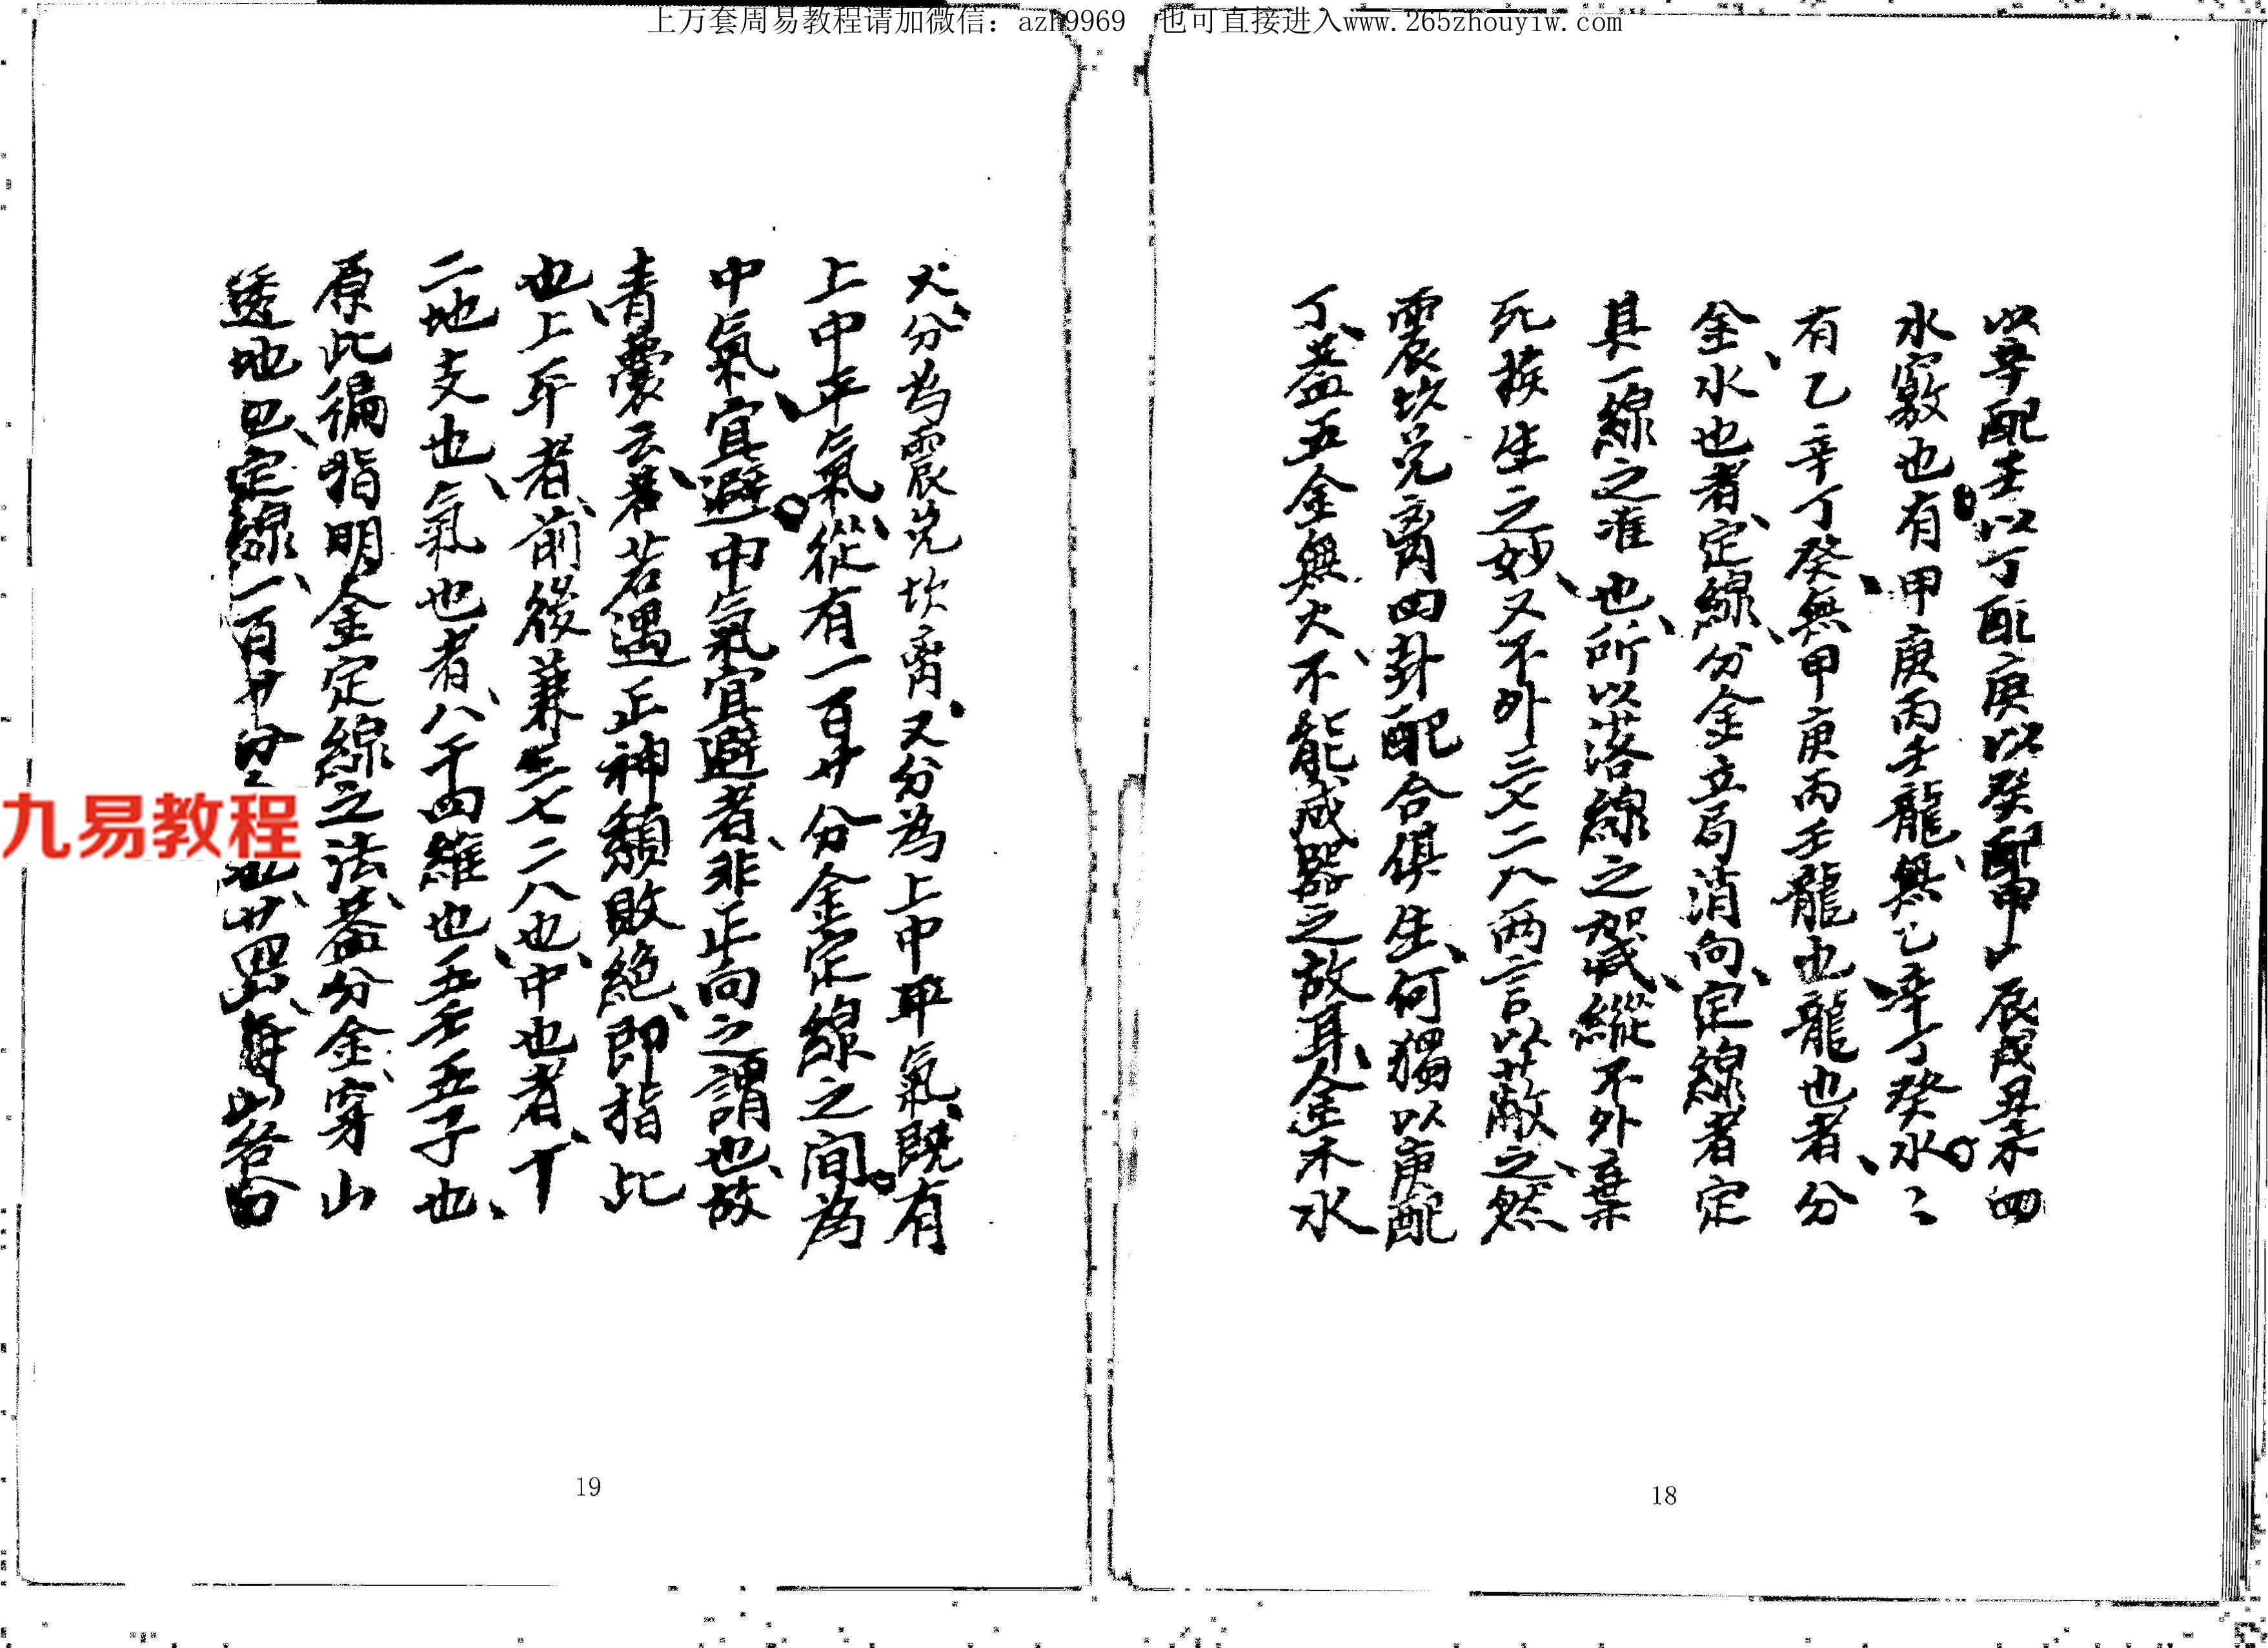 上万套周易教程请加微信：azh9969　也可直接进入www.265zhouyiw.com
以辛配壬以丁配庚以癸配甲 辰戌丑未四
水竅也有甲庚丙壬龍無乙辛丁癸水〻
有乙辛丁癸無甲庚丙壬龍也龍也者、分
金、水也者、定線、分金立局消向、定線者定
其一線之准也、所以落線之 縱不外棄
死挨生之妙、又不外三七二八兩言以蔽之、然
震坎兌离四卦配合俱生、何獨以庚配
丁、蓋五金無火、不能成器之故耳、金木水
18
火、分為震兌坎离、又分為上中平氣、既有
上中平氣、從有一百廿分金定線之间。為
中氣、宜避。中氣宜避者、非正向之謂也、故
青囊云、若遇正神顛敗絕、即指此
也、上平者、前後兼三七二八也、中也者、丁
二地支也、氣也者、八干四維也、五壬五子也、
原此徧指明金定線之法、蓋分金、穿山
透地 定線、一百廿分 也、廿四山、每山
九易教程
19